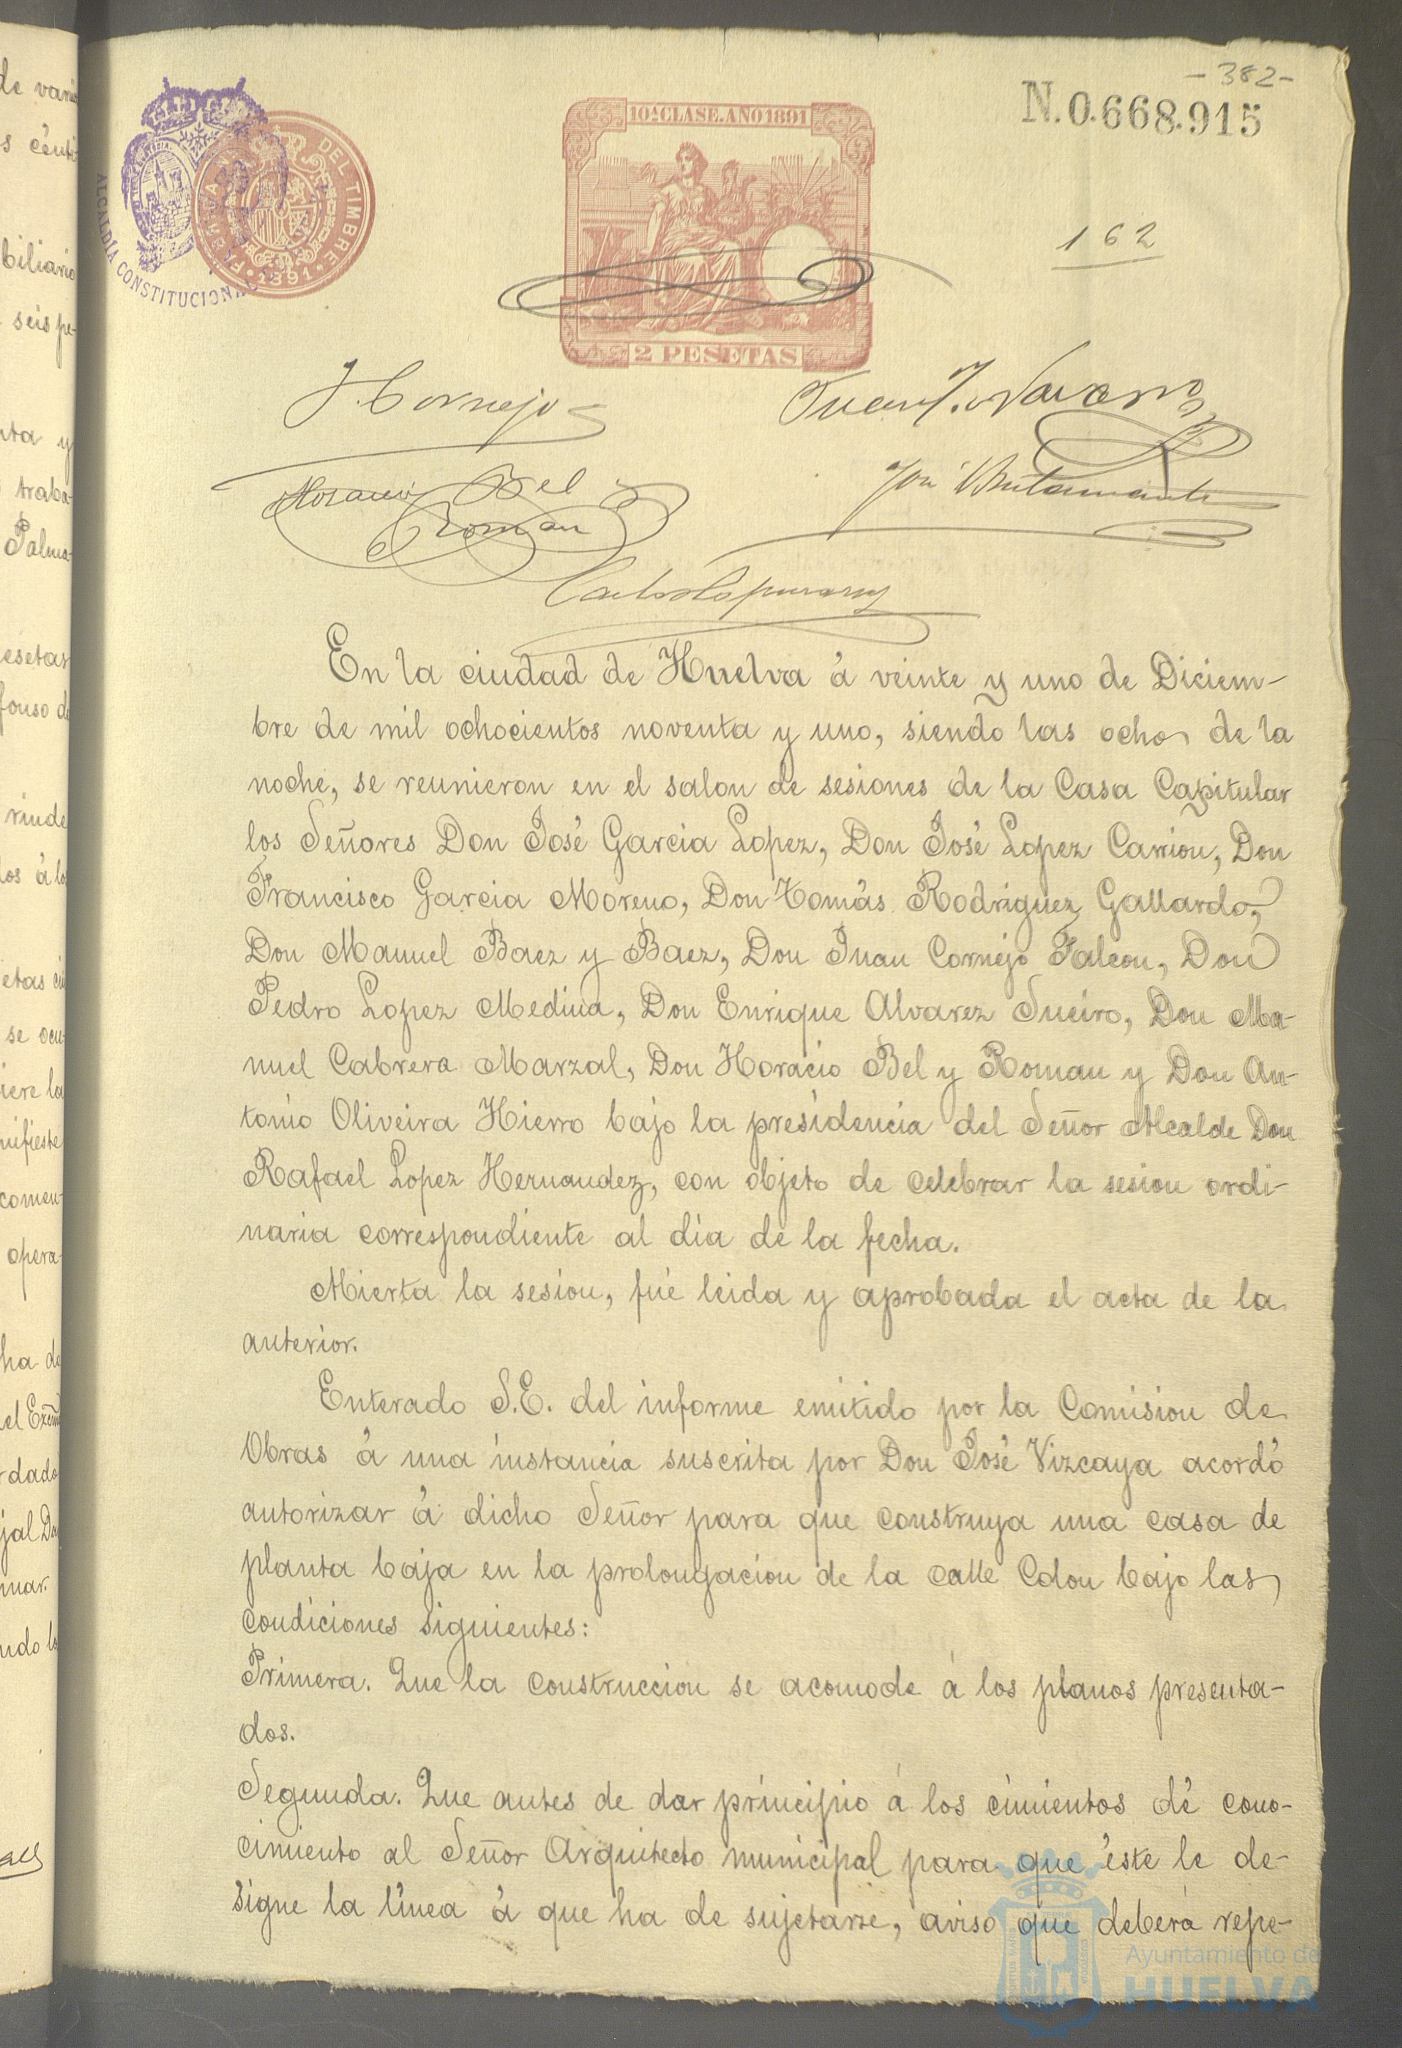 - 382 -
N. 0.668.915
10ª CLASE. AÑO 1891
ALCALDÍA CONSTITUCIONAL
DEL TIMBRE
1891
162
2 PESETAS
J. Cornejo
Juan J. Navarro
Horacio Bel
Roman
José Bustamante
En la ciudad de Huelva á veinte y uno de Diciem-
bre de mil ochocientos noventa y uno, siendo las ocho de la
noche, se reunieron en el salon de sesiones de la Casa Capitular
los Señores Don José Garcia Lopez, Don José Lopez Carrion, Don
Francisco Garcia Moreno, Don Tomás Rodriguez Gallardo,
Don Manuel Baez y Baez, Don Juan Cornejo Falcon, Don
Pedro Lopez Medina, Don Enrique Alvarez Sueiro, Don Ma-
nuel Cabrera Marzal, Don Horacio Bel y Roman y Don An-
tonio Oliveira Hierro bajo la presidencia del Señor Alcalde Don
Rafael Lopez Hernandez, con objeto de celebrar la sesion ordi-
naria correspondiente al dia de la fecha.
Abierta la sesion, fué leida y aprobada el acta de la
anterior.
Enterado S.E. del informe emitido por la Comision de
Obras á una instancia suscrita por Don José Vizcaya acordó
autorizar á dicho Señor para que construya una casa de
planta baja en la prolongacion de la calle Colon bajo las
condiciones siguientes:
Primera. Que la construccion se acomode á los planos presenta-
dos.
Segunda. Que antes de dar principio á los cimientos dé cono-
cimiento al Señor Arquitecto municipal para que éste le de-
signe la línea á que ha de sujetarse, aviso que deberá repe-
Ayuntamiento de
HUELVA